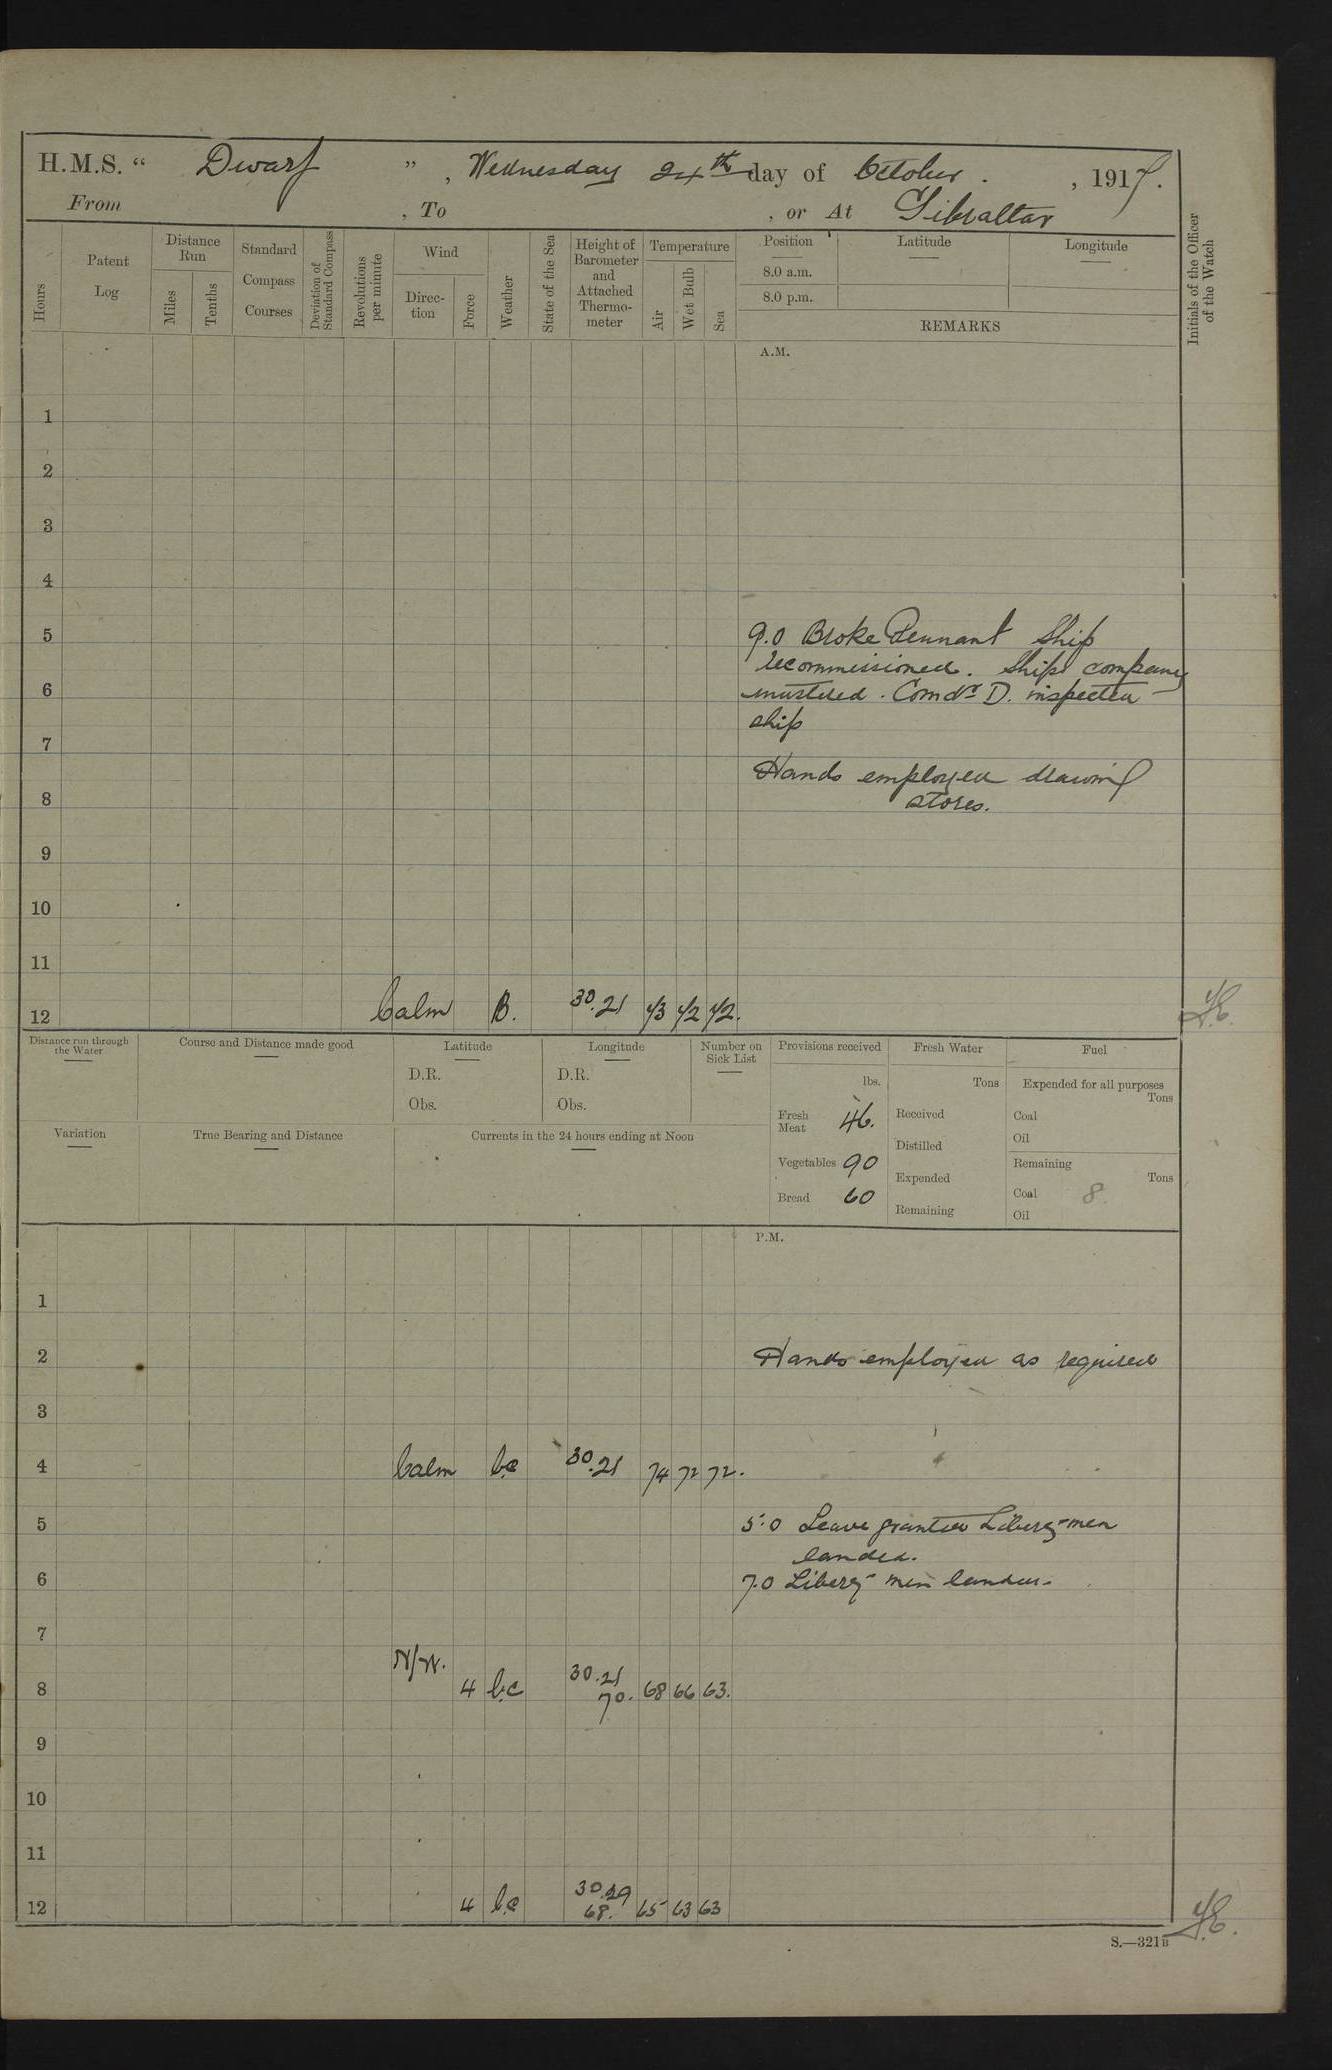 H.M.S. “ Dwarf ” , Wednesday 24th day of October . , 1917.
From , To , or At Gibraltar
Hours
Patent Log
Distance Run
Miles
Tenths
Standard Compass Courses
Deviation of Standard Compass
Revolutions per minute
Wind
Direc-tion
Force
Weather
State of the Sea
Height of Barometer and Attached Thermo-meter
Temperature
Air
Wet Bulb
Sea
Position
8.0 a.m.
8.0 p.m.
Latitude
Longitude
REMARKS
Initials of the Officer of the Watch
A.M.
1
2
3
4
5
9.0 Broke Pennant Ship
recommissioned. Ships company
6
mustered. Comdr D. inspected
ship
7
Hands employed drawing
8
stores.
9
10
11
12 Calm B. 30.21 73 72 72.
Distance run through the Water
Course and Distance made good
Latitude
D.R.
Obs.
Longitude
D.R.
Obs.
Number on Sick List
Provisions received
lbs.
Fresh Meat 46.
Vegetables 90
Bread 60
Fresh Water
Tons
Received
Distilled
Expended
Remaining
Fuel
Expended for all purposes
Tons
Coal
Oil
Remaining
Tons
Coal 8
Oil
Variation
True Bearing and Distance
Currents in the 24 hours ending at Noon
P.M.
1
2 Hands employed as required
3
4 Calm bc 30.21 74 72 72.
5 5.0 Leave granted Liberty men
landed.
6 7.0 Liberty men landed.
7
N/W. 30.21
8 4 b.c 70. 68 66 63.
9
10
11
30.29
12 4 b.c 68. 65 63 63
S.—321B